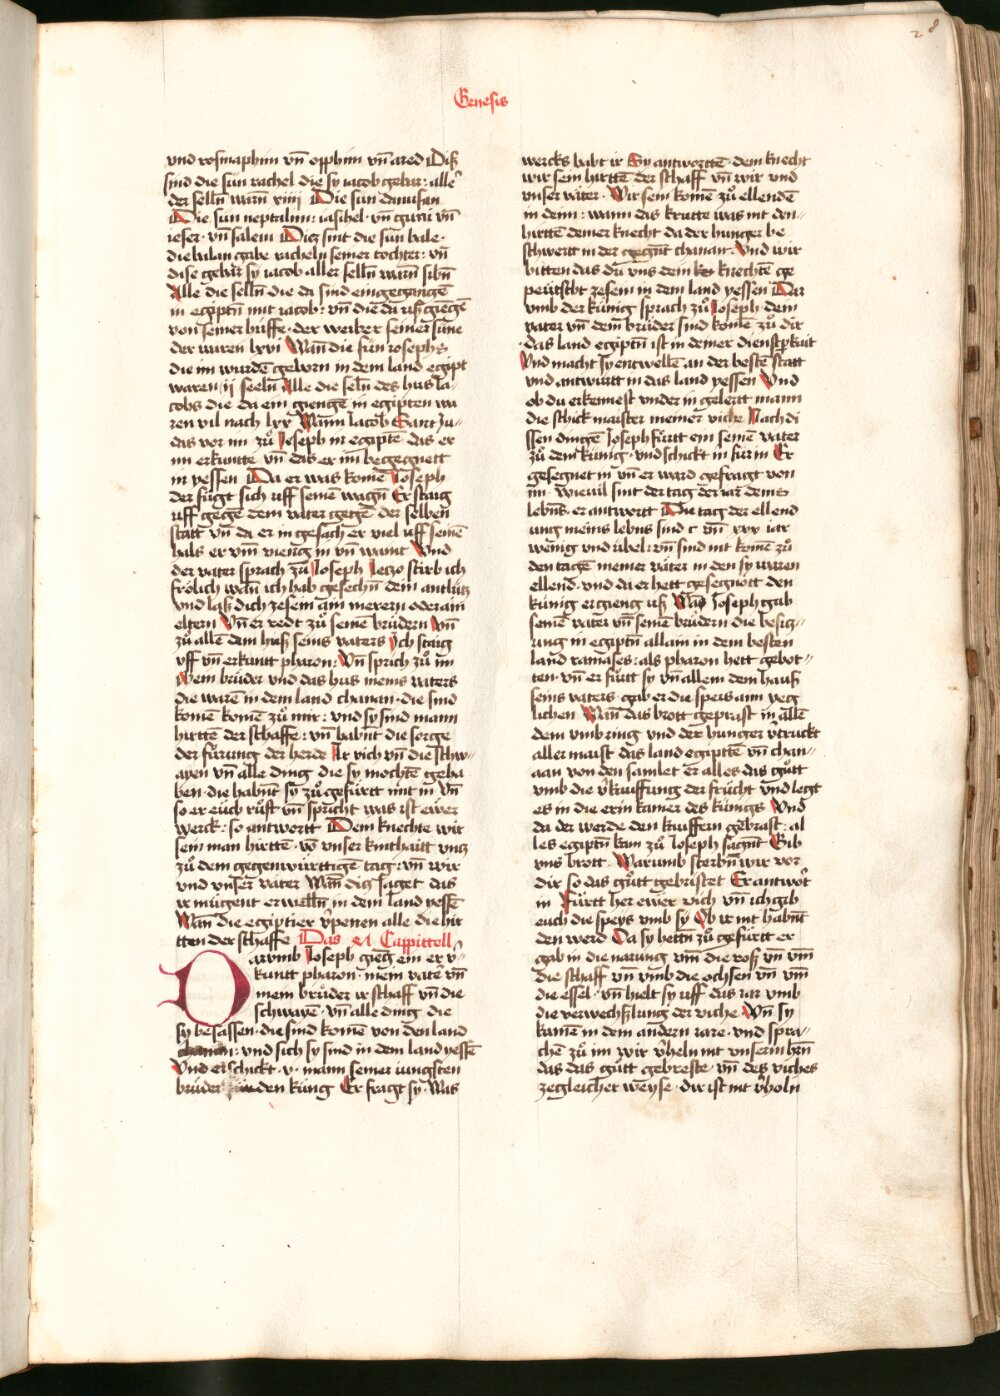 28
Genesis
vnd rosmaphim vn̄ opphim vn̄ ared Diß
sind die sün rachel die sy iacob gebar: alle
der selln̄ warn̄ xiiii Die sun dan usan
Die sun neptalim: iasihel · vn̄ guni vn̄
ieser · vn̄ salem Dicz sint die sün bale ·
die balan gabe racheln seiner tochter: vn̄
dise gebar sy iacob aller selln̄ warn̄ sibn̄
Alle die selln̄ die da sind eingegangē
in egiptn̄ mit iacob: vn̄ die da uß giegē
von seiner huffe · der weiber seiner süne
der waren lxvi Wan̄ die sün iosephs
die im wurdē geborn in dem land egipt
waren ii seeln̄ Alle die seln̄ des hus Ia-
cobs die da ein giengē in egipten wa
ren vil nach lxx Wann Iacob Sant Ju-
das vor im zů Joseph in egiptē das er
im erkuntte vn̄ das er im begegnett
in yessen Da er was komē Joseph
der fügt sich uff semē wagn̄ Er staig
uff gegē dem vater gegē der selben
statt vn̄ da er in gesach er viel uff seinē
hals er vm̄ vieng in vn̄ waint Vnd
der vater sprach zů Joseph Jeczo stirb ich
frölich wan̄ ich hab gesechn̄ dein antlütz
vnd laß dich zesein am merern oder am
eltern Vn̄ er redt zů seinē brüdern Vn̄
zů allē dem huß seins vaters Ych staig
uff vn̄ erkuntt pharon: Vn̄ sprich zů im
Mein brüder vnd das hus meins vaters
die warē in dem land chanan · die sind
komē komē zů mir: vnd sy sind mann
hirttē der schaffe: vn̄ habn̄t die sorge
der fürung der herde Ir vich vn̄ die schw-
ayen vn̄ alle ding die sy mochtē geha
ben · die habn̄t sy zů gefürtt mit in Vn̄
so er eüch rüfft vn̄ spricht was ist ewer
werck: so antwortt Dein knechte wir
sein man hirttē · võ vnser kinthaitt vncz
zů dem gegenwürttigē tag: vn̄ wir
vnd vnser vater Wan̄ dicz saget das
ir mügent erwelln̄ in dem land yessē
Wan̄ die egiptier v̄penen alle die hir
tten der schaffe Das Cappittell
Darumb Joseph gieg ein er v̄-
kuntt pharon · mein vater vn̄
mein brüder ir schaff vn̄ die
schwaye · vn̄ alle ding die
sy besassen · die sind komē von den land
chanan: vnd sich sy sind in dem land yessē
Vnd er schickt · v · mann seiner iungsten
brüder den küng Er fragt sy · Was
wercks habt ir Sy antworttē · dem knecht
wir sein hirttē der schaff vn̄ wir vnd
vnser väter · Wir sein komē zů ellendē
in deim: wann das krutte was nit den-
hirttē deiner knecht da der hunger be
schwertt in der gegn̄t chanan: Vnd wir
bitten das du vns dein knechtē ge
peütscht zesein in dem land yessen Dar
vmb der künig sprach zů Joseph dein
vater vn̄ dein brüder sind komē zů dir
· das land egiptn̄ ist in deiner dienstpkait
Vnd mach sy entwellē an der bestē statt
vnd antwürtt in das land yessen Vnd
ob du erkennest vnder in gelertt mann
die schick maister meiner viche Nach di
ssen dingē Joseph fürtt ein seinē vater
zů dem künig · vnd schickt in fur in Er
gesegnet in vn̄ er ward gefragt von
im · wieuil sint der tag der iar deins
lebn̄s · er antwortt Die tag der ellend
ung meins lebns sind c vn̄ xxx iar
wenig vnd übel: vn̄ sind nit komē zů
den tagē meiner väter in den sy waren
ellend · vnd da er hett gesegnott den
künig er gieng uß Wan̄ Joseph gab
seinē vater vn̄ seinē brüdern die besicz-
ung in egiptn̄ allain in dem besten
land ramases: als pharon hett gebot-
ten · vn̄ er fürtt sy vn̄ allem dem hauß
seins vaters · gab er die speis aim yeg
lichen Wan̄ das brott geprast in allē
dem vmbring vnd der hunger v̄truckt
aller maist das land egiptē vn̄ chan-
aan von den samlet er alles das gůtt
vmb die v̄kauffung der frücht vnd legt
es in die erin kamer des künigs Vnd
da der werde den kauffern gebrast: al
les egiptn̄ kam zů Joseph sagn̄t Gib
vns brott · Warumb sterbn̄ wir vor
dir so das gůtt gebristet Er antwort
in Fürtt her ewer vich vn̄ ich gib
euch die speys vmb sy Ob ir nit habn̄t
den werd Da sy hettn̄ zů gefürtt er
gab in die narung vm̄ die roß vn̄ vm̄
die schaff vn̄ vmb die ochsen vn̄ vm̄
die essel · vn̄ hielt sy uff das iar vmb
die verwechßlung der viche Vn̄ sy
kamē in dem andern iare · vnd spra-
chē zů im wir v̄heln nit vnserm hern̄
das das gůtt gebreste · vn̄ des viches
zegleicher weyse · dir ist nit v̄holn